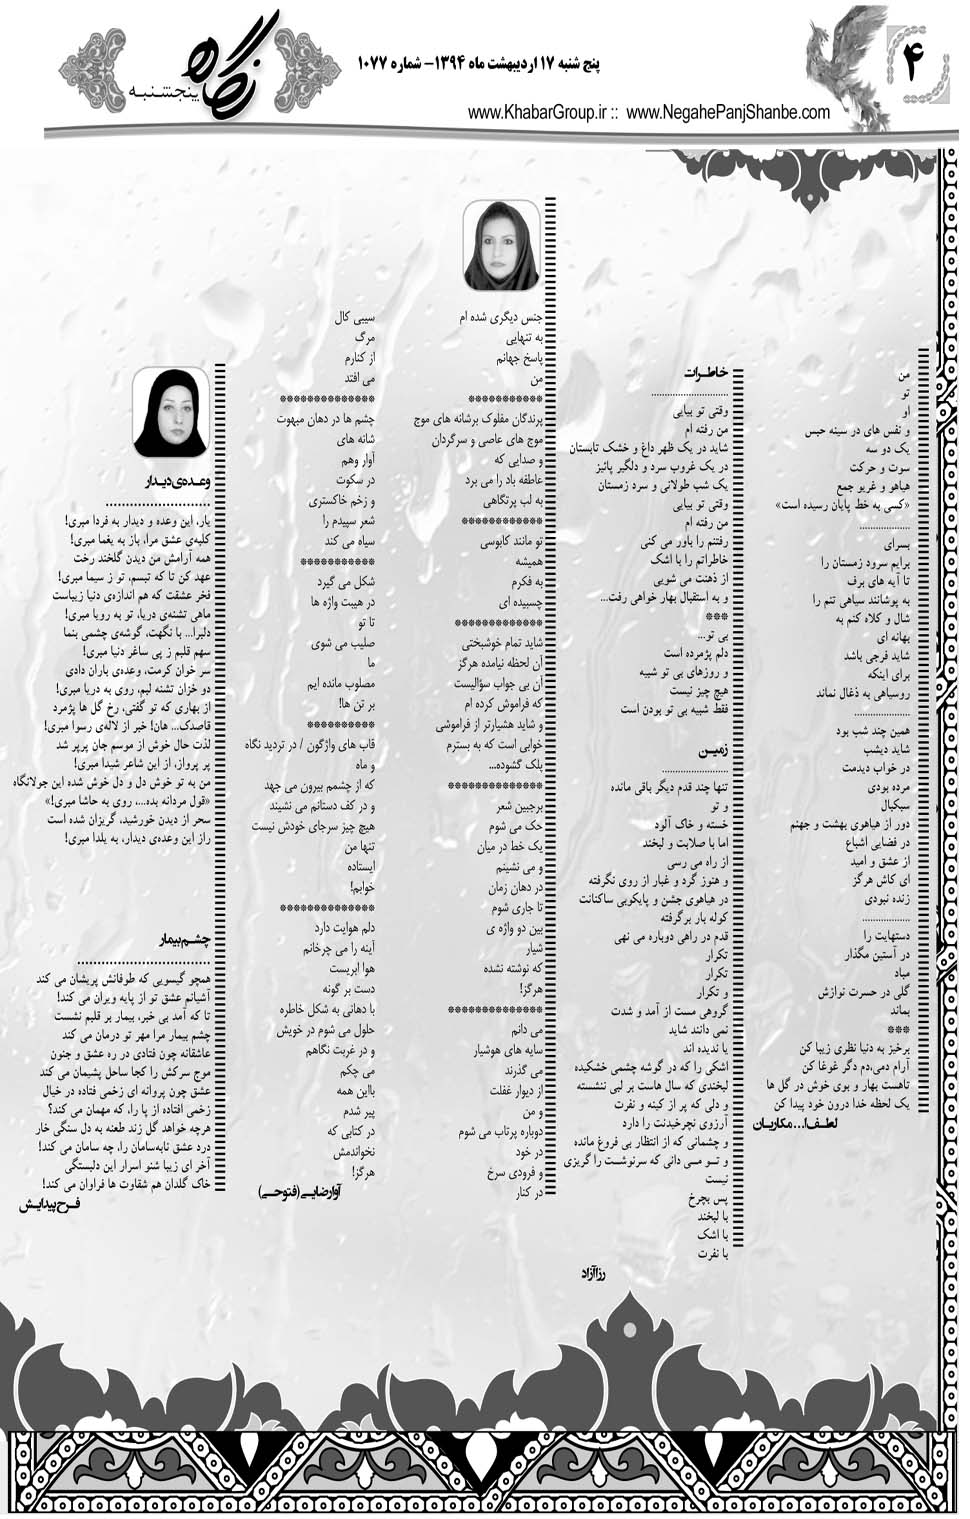 ۴
پنج شنبه ۱۷ اردیبهشت ماه ۱۳۹۴- شماره ۱۰۷۷
www.KhabarGroup.ir :: www.NegahePanjShanbe.com
نگاه
پنجشنبه
من
تو
او
و نفس های در سینه حبس
یک دو سه
سوت و حرکت
هیاهو و غریو جمع
«کسی به خط پایان رسیده است»
..................
بسرای
برایم سرود زمستان را
تا آیه های برف
به پوشانند سیاهی تنم را
شال و کلاه کنم به
بهانه ای
شاید فرجی باشد
برای اینکه
روسیاهی به ذغال نماند
...................
همین چند شب بود
شاید دیشب
در خواب دیدمت
مرده بودی
سبکبال
دور از هیاهوی بهشت و جهنم
در فضایی اشباع
از عشق و امید
ای کاش هرگز
زنده نبودی
.................
دستهایت را
در آستین مگذار
مباد
گلی در حسرت نوازش
بماند
***
برخیز به دنیا نظری زیبا کن
آرام دمی،دم دگر غوغا کن
تاهست بهار و بوی خوش در گل ها
یک لحظه خدا درون خود پیدا کن
لطف ا... مکاریان
خاطرات
...........................
وقتی تو بیایی
من رفته ام
شاید در یک ظهر داغ و خشک تابستان
در یک غروب سرد و دلگیر پائیز
یک شب طولانی و سرد زمستان
وقتی تو بیایی
من رفته ام
رفتنم را باور می کنی
خاطراتم را با اشک
از ذهنت می شویی
و به استقبال بهار خواهی رفت...
***
بی تو...
دلم پژمرده است
و روزهای بی تو شبیه
هیچ چیز نیست
فقط شبیه بی تو بودن است
زمین
........................
تنها چند قدم دیگر باقی مانده
و تو
خسته و خاک آلود
اما با صلابت و لبخند
از راه می رسی
و هنوز گرد و غبار از روی نگرفته
در هیاهوی جشن و پایکوبی ساکنانت
کوله بار برگرفته
قدم در راهی دوباره می نهی
تکرار
تکرار
و تکرار
گروهی مست از آمد و شدت
نمی دانند شاید
یا ندیده اند
اشکی را که در گوشه چشمی خشکیده
لبخندی که سال هاست بر لبی ننشسته
و دلی که پر از کینه و نفرت
آرزوی نچرخیدنت را دارد
و چشمانی که از انتظار بی فروغ مانده
و تو می دانی که سرنوشت را گریزی
نیست
پس بچرخ
با لبخند
با اشک
با نفرت
رزا آزاد
جنس دیگری شده ام
به تنهایی
پاسخ جهانم
من
***********
پرندگان مفلوک برشانه های موج
موج های عاصی و سرگردان
و صدایی که
عاطفه باد را می برد
به لب پرتگاهی
************
تو مانند کابوسی
همیشه
به فکرم
چسبیده ای
*************
شاید تمام خوشبختی
آن لحظه نیامده هرگز
آن بی جواب سؤالیست
که فراموش کرده ام
و شاید هشیارتر از فراموشی
خوابی است که به بسترم
پلک گشوده...
**************
برجبین شعر
حک می شوم
یک خط در میان
و می نشینم
در دهان زمان
تا جاری شوم
بین دو واژه ی
شیار
که نوشته نشده
هرگز!
**************
می دانم
سایه های هوشیار
می گذرند
از دیوار غفلت
و من
دوباره پرتاب می شوم
در خود
و فرودی سرخ
در کنار
سیبی کال
مرگ
از کنارم
می افتد
**************
چشم ها در دهان مبهوت
شانه های
آوار وهم
در سکوت
و زخم خاکستری
شعر سپیدم را
سیاه می کند
***********
شکل می گیرد
در هیبت واژه ها
تا تو
صلیب می شوی
ما
مصلوب مانده ایم
بر تن ها!
**********
قاب های واژگون / در تردید نگاه
و ماه
که از چشمم بیرون می جهد
و در کف دستانم می نشیند
هیچ چیز سرجای خودش نیست
تنها من
ایستاده
خوابم!
**************
دلم هوایت دارد
آینه را می چرخانم
هوا ابریست
دست بر گونه
با دهانی به شکل خاطره
حلول می شوم در خویش
و در غربت نگاهم
می چکم
بااین همه
پیر شدم
در کتابی که
نخواندمش
هرگز!
آوا رضایی (فتوحی)
وعده‌ی دیدار
.............................
یار، این وعده و دیدار به فردا مبری!
کلبه‌ی عشق مرا، باز به یغما مبری!
همه آرامش من دیدن گلخند رخت
عهد کن تا که تبسم، تو ز سیما مبری!
فخر عشقت که هم اندازه‌ی دنیا زیباست
ماهی تشنه‌ی دریا، تو به رویا مبری!
دلبرا... با نگهت، گوشه‌ی چشمی بنما
سهم قلبم ز پی ساغر دنیا مبری!
سر خوان کرمت، وعده‌ی باران دادی
دو خزان تشنه لبم، روی به دریا مبری!
از بهاری که تو گفتی، رخ گل ها پژمرد
قاصدک... هان! خبر از لاله‌ی رسوا مبری!
لذت حال خوش از موسم جان پرپر شد
پر پرواز، از این شاعر شیدا مبری!
من به تو خوش دل و دل خوش شده این جولانگاه
«قول مردانه بده...، روی به حاشا مبری!»
سحر از دیدن خورشید، گریزان شده است
راز این وعده‌ی دیدار، به یلدا مبری!
چشم بیمار
.....................................
همچو گیسویی که طوفانش پریشان می کند
آشیانم عشق تو از پایه ویران می کند!
تا که آمد بی خبر، بیمار بر قلبم نشست
چشم بیمار مرا مهر تو درمان می کند
عاشقانه چون فتادی در ره عشق و جنون
موج سرکش را کجا ساحل پشیمان می کند
عشق چون پروانه ای زخمی فتاده در خیال
زخمی افتاده از پا را، که مهمان می کند؟
هرچه خواهد گل زند طعنه به دل سنگی خار
درد عشق نابه‌سامان را، چه سامان می کند!
آخر ای زیبا شنو اسرار این دلبستگی
خاک گلدان هم شقاوت ها فراوان می کند!
فرح پیدایش